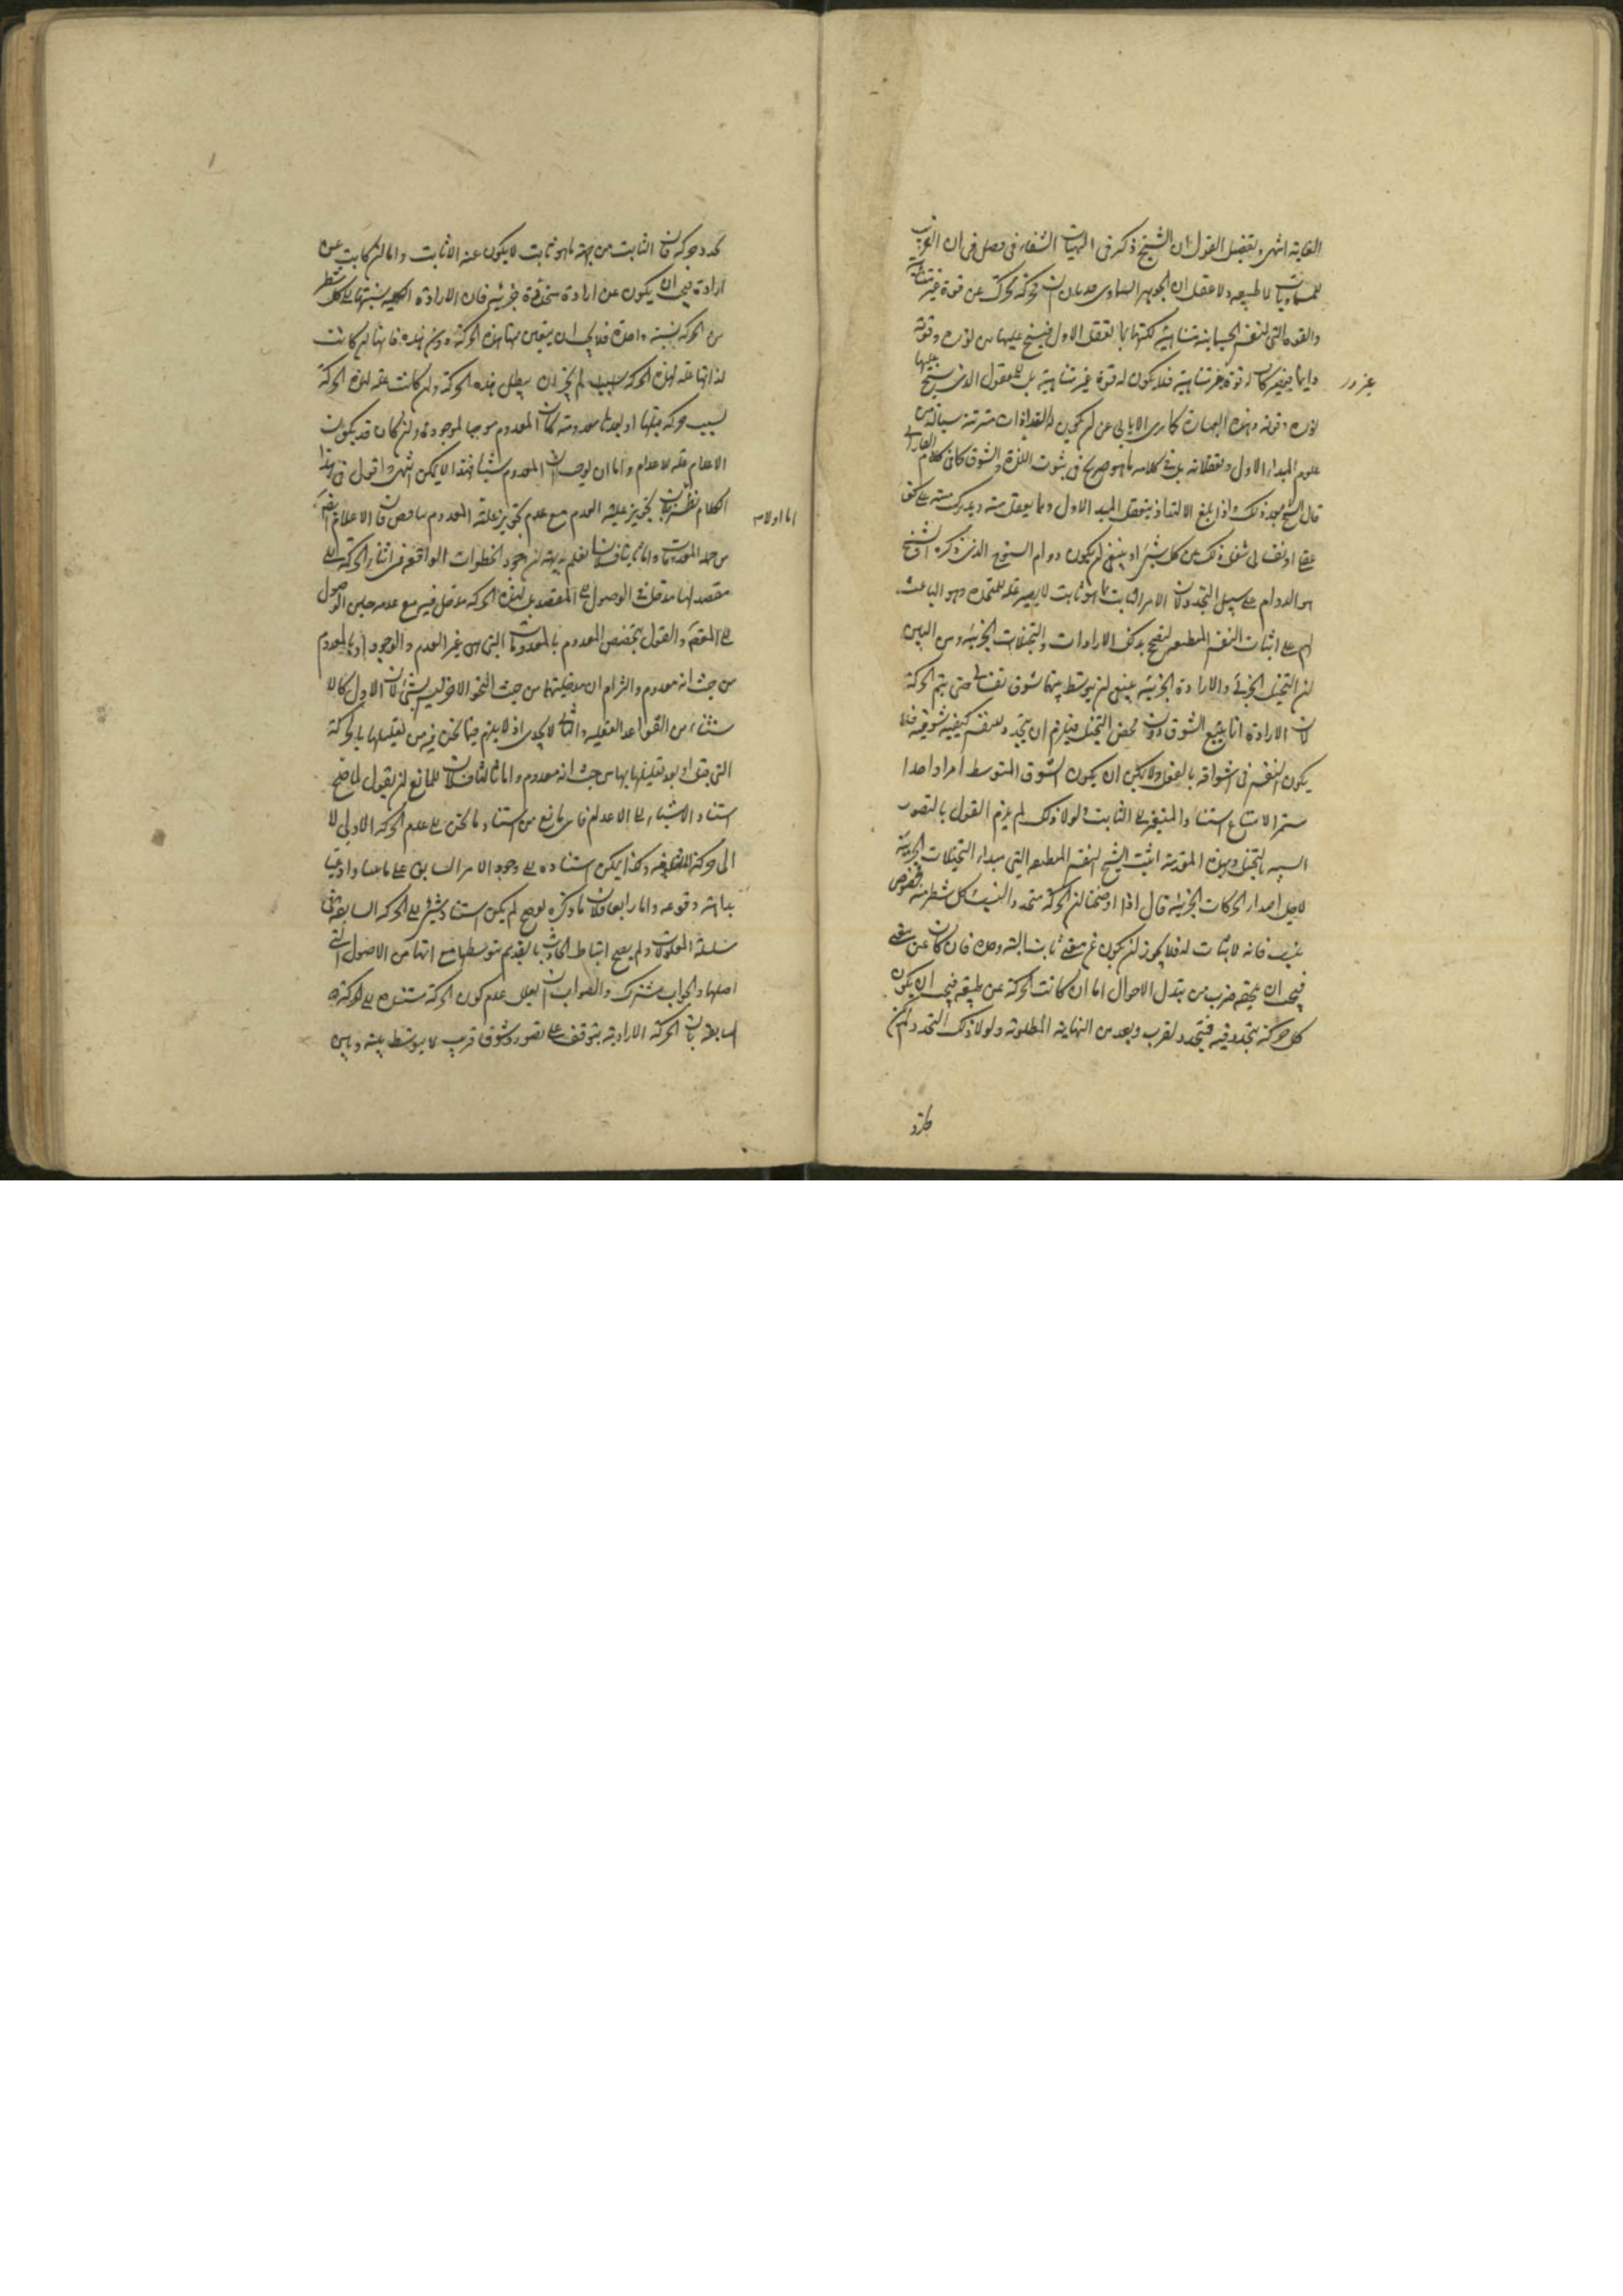 الغاية انتهى وتفصيل القول ان الشيخ ذكر فى الهيات الشفاء فى فصل فى ان القريب
للسماويات لا طبيعة ولا عقل ان الجوهر السماوى قد بان ان محركه تحرك عن قوة غير متناهية
والقوة التى لنفسه الجسمانية متناهية لكنها بما تعقل الاول فيسيح عليها من نوره وقوته
دايما يصير كان له قوة غير متناهية فلا يكون له قوة غير متناهية بل للمعقول الذى يسيح عليها
نوره وقوته وهذه العبارة كما ترى لا يابى عن ان يكون
علوم المبدا الاول وتعقلاته بل فى كلامه ما هو صريح فى ثبوت اللذة والشوق كما فى كلام
قال الشيخ بعيد ذلك واذا بلغ الالتذاذ بتعقل المبدا الاول وبما يعقل منه ويدرك منه على نحو
عقلى او نفسانى شغل ذلك عن كل شئ او ينبغى ان يكون دوام السنوح الذى ذكره الشيخ
هو الدوام على سبيل التجدد لان الامر الثابت بما هو ثابت لا يصير علة للتجدد وهو الباعث
لهم على اثبات النفس المنطبعة ليصح بذلك الارادات والتخيلات الجزئية ومن البين
ان التخيل الجزئى والارادة الجزئية ينبغى ان يتوسط بينهما شوق نفسانى حتى يتم الحركة
لان الارادة انما يتبع الشوق دون محض التخيل فيلزم ان يتجدد للنفس كيفية شوقية فلا
يكون النفس فى اشواقه بالفعل ولا يمكن ان يكون الشوق المتوسط امرا واحدا
مستمرا لامتناع استناد المتغير الى الثابت ولولا ذلك لم يلزم القول بالتصور
الشبيه بالتخيل وبهذه المقدمة اثبت الشيخ النفس المنطبعة التى مبدا التخيلات الجزئية
لاجل اصدار الحركات الجزئية قال اذا اوضحنا ان الحركة متجدد النسب وكل شطر منه مخصوص
بنسب فانه لا ثبات له فلا يجوز ان يكون عن معنى ثابت البتة وحده فان كان عن معنى
فيجب ان يلحقه ضرب من تبدل الاحوال اما ان كانت الحركة عن طبيعة فيجب ان يكون
كل حركة يتجدد فيه فيتجدد لقرب وبعد من النهاية المطلوبة ولولا ذلك التجدد لم يكن
تجدد حركة فان الثابت من جهة ما هو ثابت لا يكون عنه الا ثابت واما ان كانت عن
ارادة فيجب ان يكون عن ارادة متجددة جزئية فان الارادة الكلية نسبتها الى كل شطر
من الحركة نسبة واحدة فلا يجب ان يتعين منها هذه الحركة دون هذه فانها ان كانت
لذاتها علة لهذه الحركة لم يجز ان يبطل هذه الحركة وان كانت علة لهذه الحركة
بسبب حركة قبلها او بعدها معدومة كان المعدوم موجبا لموجود وان كان قد يكون
الاعدام علة للاعدام واما ان يوجب المعدوم شيئا فهذا لا يمكن انتهى واقول فى هذا
الكلام نظر تجويز علية العدم مع عدم تجويز علية المعدوم فان الاعدام ايضا
اما اولا
من جملة المعدومات واما ثانيا فلانا نعلم بديهة ان وجود الخطوات الواقعة فى اثناء الحركة الى
مقصد لها مدخل فى الوصول الى المقصد بل لهذه الحركة مدخل فيه مع عدمه حين الوصول
الى المقصد والقول بتخصيص المعدوم بالمعدومات التى هى غير العدم والوجود او بالمعدوم
من حيث انه معدوم والتزام ان مدخليتها من حيث النحو الاخر ليس بشئ لان الاول كالا
ستثناء من القواعد العقلية والثانى لا يجدى اذ لا يلزم فيما نحن فيه من تعليلها بالحركة
التى قبل او بعد تعليلها بها من حيث انه معدوم واما ثالثا فلان للمانع ان يقول لما صح
استناد الاشياء الى الاعدام فاى مانع من استناد ما نحن الى عدم الحركة الاولى لا
الى حركة وكذا يمكن استناده الى وجود الامر السابق على ما
بداهته وقوعه واما رابعا فلان ما ذكره لو صح لم يكن استناد شئ الى الحركة السابقة فى
سلسلة المعلولات ولم يصح ارتباط الحادث بالقديم بتوسطها مع انها من الاصول التى
اصلها والجواب مشترك والصواب ان يعلل عدم كون الحركة مستندة الى الحركة
السابقة بان الحركة الارادية يتوقف على تصور وشوق قريب لا يتوسط بينه وبين